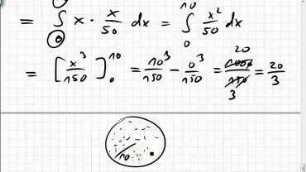 = ∫₀ x · x/50 dx = ∫₀¹⁰ x²/50 dx
= [x³/150]₀¹⁰ = 10³/150 - 0³/150 = 20/3 = 20/3
10